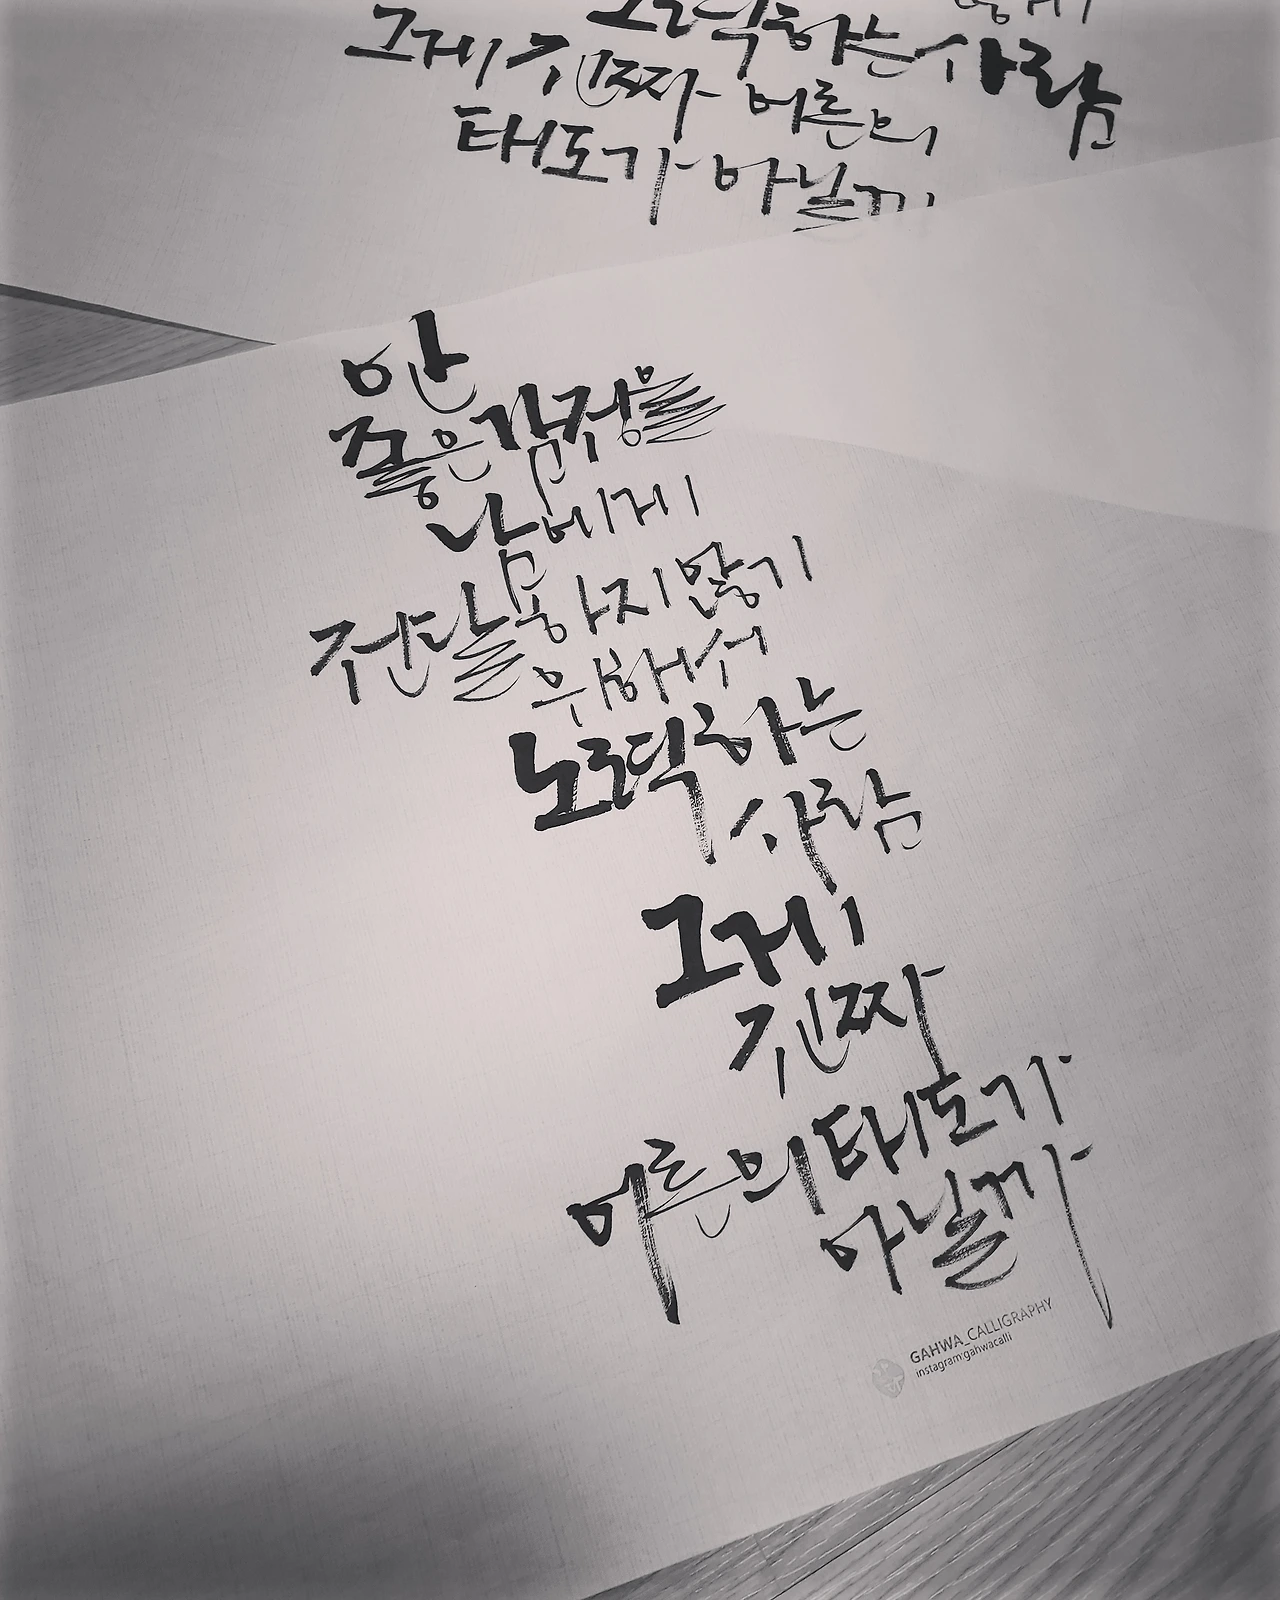 노력하는 사람
그게 진짜 어른의
태도가 아닐까
안
좋은 감정을
남에게
전달하지 않기
위해서
노력하는
사람
그게
진짜
어른의 태도가
아닐까
GAHWA_CALLIGRAPHY
instagram:gahwacalli